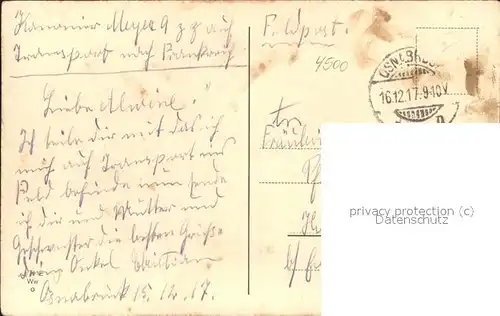 Kanonier Meyer 9 z z auf
Transport nach Frankreich
Feldpost.
4500
OSNABRÜCK
16.12.17.9-10V.
Liebe Alwine!
Ich teile dir mit das ich
mich auf Transport ins
Feld befinde nun sende
ich dir und Mutter und
Geschwister die besten Grüße
dein Onkel
Osnabrück 15.12.17.
An
Fräulein
privacy protection (c)
Datenschutz